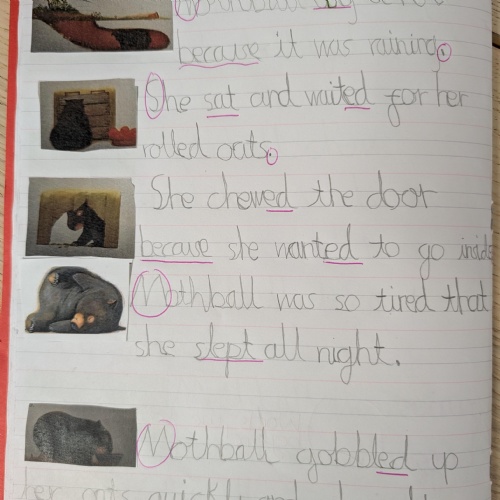 because it was raining.
She sat and waited for her
rolled oats.
She chewed the door
because she wanted to go inside
Mothball was so tired that
she slept all night.
Mothball gobbled up
her oats quickly and